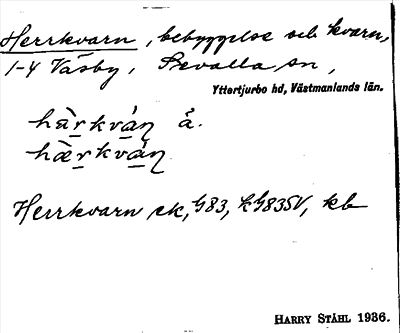 Herrkvarn, bebyggelse och kvarn,
1-4 Väsby, Sevalla sn,
Yttertjurbo hd, Västmanlands län.
hä̀r̠kvá̠ɳ å.
hæ̀r̠kvá̠ɳ
Herrkvarn ek, G83, kG83SV, kb
HARRY STÅHL 1936.